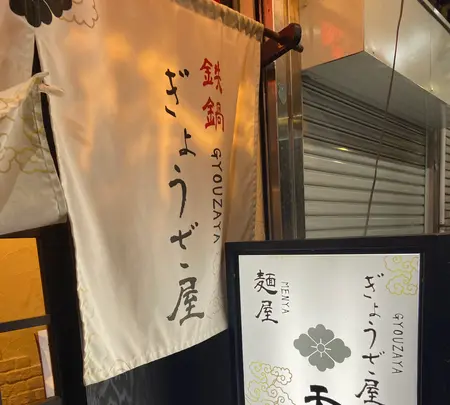 鉄鍋
ぎょうざ屋
GYOUZAYA
ぎょうざ屋
GYOUZAYA
麺屋
MENYA